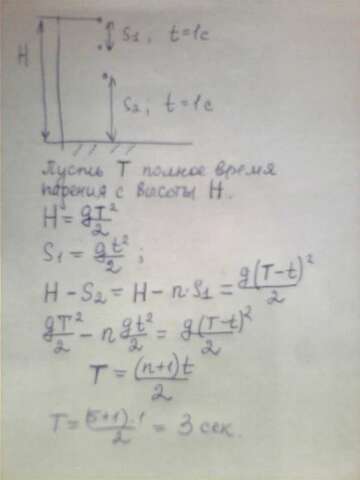 S₁; t=1c
H
S₂; t=1c
Пусть T полное время
падения с высоты H.
H = gT²/2
S₁ = gt²/2 ;
H - S₂ = H - n·S₁ = g(T-t)²/2
gT²/2 - n gt²/2 = g(T-t)²/2
T = (n+1)t/2
T = (5+1)·1/2 = 3 сек.